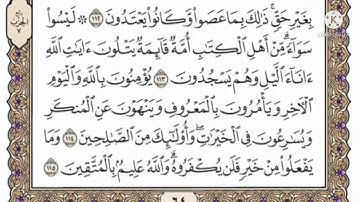 بِغَيْرِ حَقٍّ ذَٰلِكَ بِمَا عَصَوا وَّكَانُوا يَعْتَدُونَ ١١٢ ۞ لَيْسُوا
سَوَاءً مِّنْ أَهْلِ الْكِتَٰبِ أُمَّةٌ قَائِمَةٌ يَتْلُونَ ءَايَٰتِ اللَّهِ
ءَانَاءَ الَّيْلِ وَهُمْ يَسْجُدُونَ ١١٣ يُؤْمِنُونَ بِاللَّهِ وَالْيَوْمِ
الْءَاخِرِ وَيَأْمُرُونَ بِالْمَعْرُوفِ وَيَنْهَوْنَ عَنِ الْمُنكَرِ
وَيُسَٰرِعُونَ فِي الْخَيْرَٰتِ وَأُولَٰئِكَ مِنَ الصَّٰلِحِينَ ١١٤ وَمَا
يَفْعَلُوا مِنْ خَيْرٍ فَلَن يُكْفَرُوهُ وَاللَّهُ عَلِيمٌ بِالْمُتَّقِينَ ١١٥
٦٤